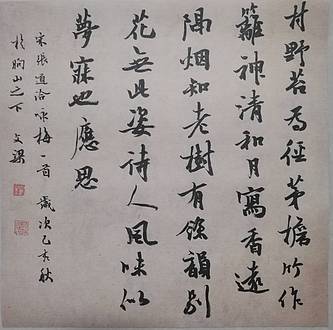 村野苔為徑茅檐竹作
籬神清和月寫香遠
隔烟知老樹有餘韻別
花無此姿詩人風味似
夢寐也應思
宋張道洽咏梅一首 歲次己亥秋
於朐山之下 文